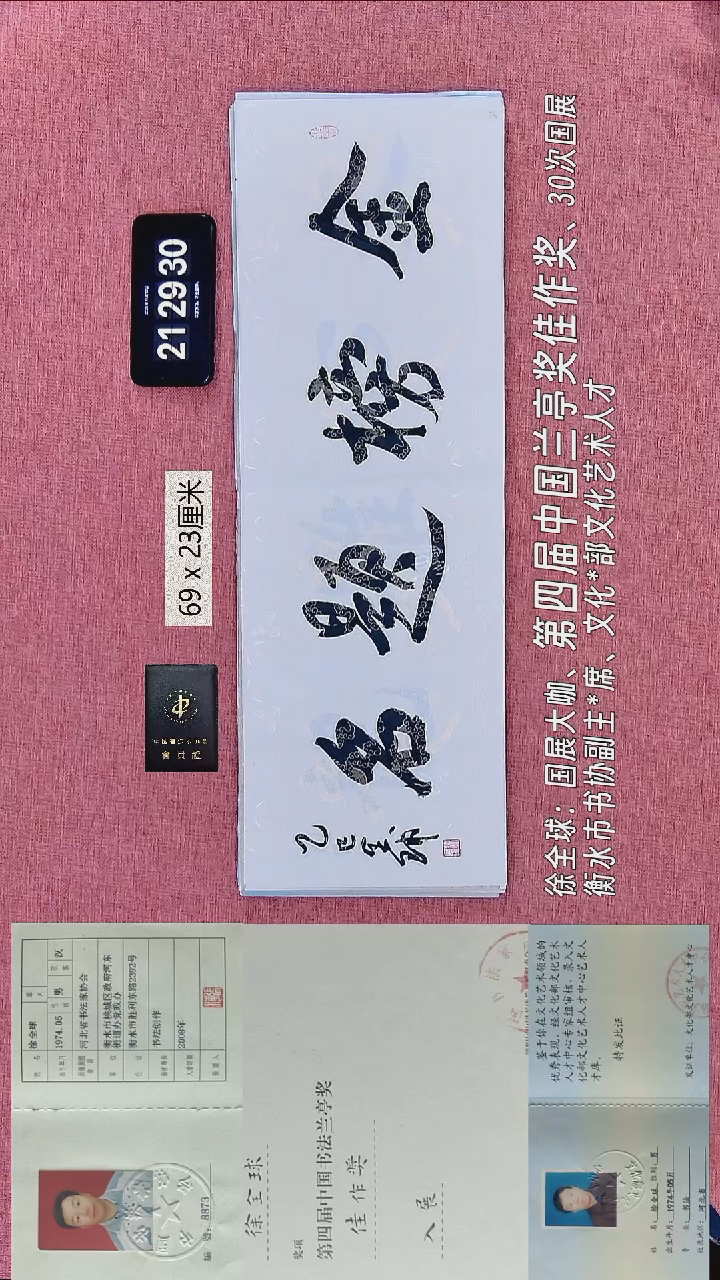 21 29 30
69 x 23厘米
金榜题名
乙巳全球
徐全球：国展大咖、第四届中国兰亭奖佳作奖、30次国展
衡水市书协副主*席、文化*部文化艺术人才
姓名 徐全球
1974.05 男 汉
河北省书法家协会
衡水市桃城区政府河东
街道办党政办
衡水市胜利东路2392号
书法创作
2008年
编号：8873
徐全球
奖项
第四届中国书法兰亭奖
佳作奖
入展
鉴于你在文化艺术领域的
优秀表现，经文化部文化艺术
人才中心专家组审核，录入文
化部文化艺术人才中心艺术人
才库。
特发此证
发证单位：文化部文化艺术人才中心
姓名：徐全球 性别：男
出生年月：1974年05月
专业：书法